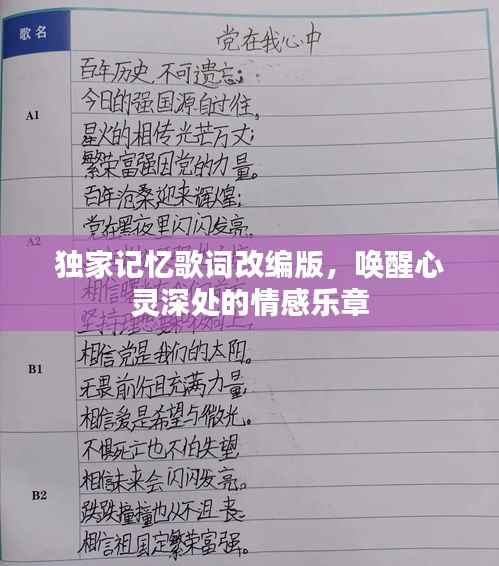 歌名 党在我心中
A1
百年历史,不可遗忘;
今日的强国源自过往,
星火的相传光芒万丈;
繁荣富强因党的力量。
A2
百年沧桑迎来辉煌;
党在黑夜里闪闪发亮,
独家记忆歌词改编版，唤醒心
灵深处的情感乐章
B1
相信党是我们的太阳。
无畏前行且充满力量,
相信爱是希望与微光。
B2
不惧死亡也不怕失望
相信未来会闪闪发亮。
跌跌撞撞也从不沮丧
相信祖国定繁荣富强。